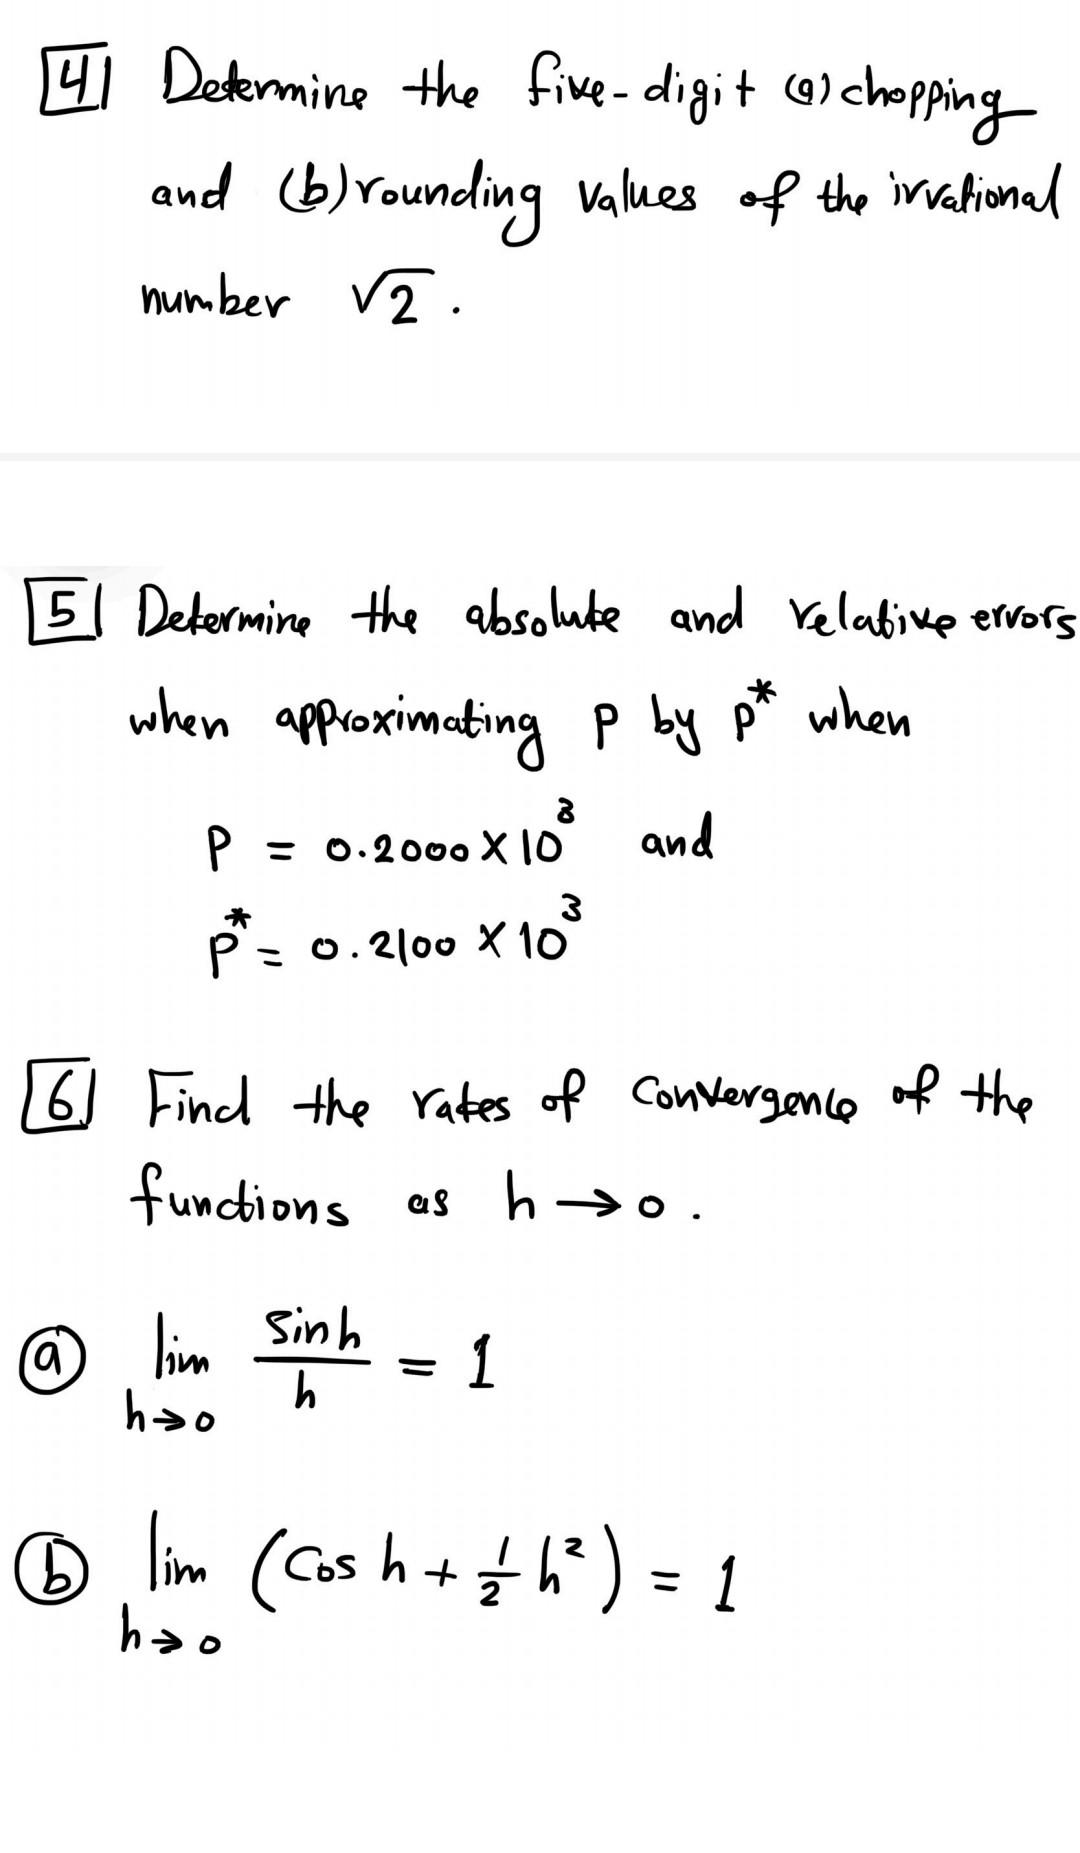 4 Determine the five-digit (a) chopping
and (b) rounding values of the irrational
number √2 .
5 Determine the absolute and relative errors
when approximating P by P* when
P = 0.2000 X 10³ and
P* = 0.2100 X 10³
6 Find the rates of Convergence of the
functions as h → 0 .
ⓐ lim h→0 sinh/h = 1
ⓑ lim h→0 (Cos h + 1/2 h²) = 1